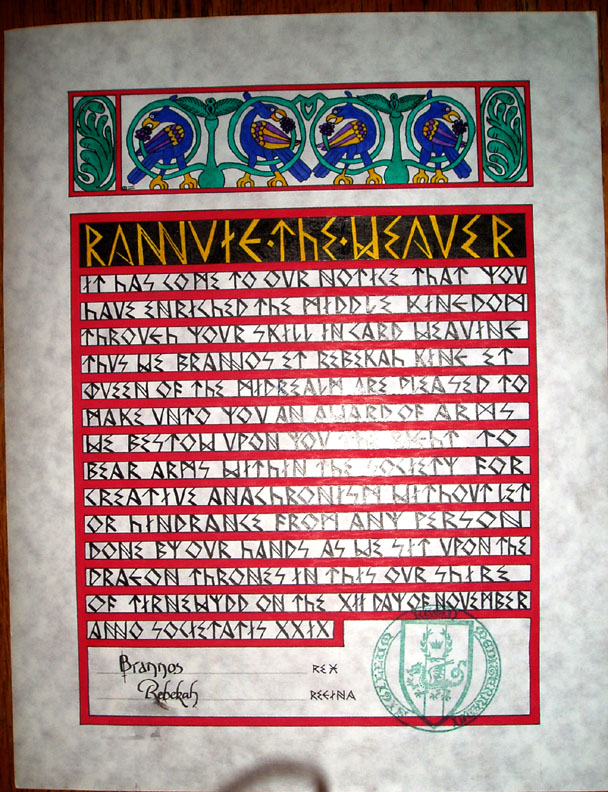 RANNVIG · THE · WEAVER
IT HAS COME TO OUR NOTICE THAT YOU
HAVE ENRICHED THE MIDDLE KINGDOM
THROUGH YOUR SKILL IN CARD WEAVING
THUS WE BRANNOS ET REBEKAH KING ET
QUEEN OF THE MIDREALM ARE PLEASED TO
MAKE UNTO YOU AN AWARD OF ARMS
WE BESTOW UPON YOU THE RIGHT TO
BEAR ARMS WITHIN THE SOCIETY FOR
CREATIVE ANACHRONISM WITHOUT LET
OR HINDRANCE FROM ANY PERSON
DONE BY OUR HANDS AS WE SIT UPON THE
DRAGON THRONES IN THIS OUR SHIRE
OF TIRNEWYDD ON THE XII DAY OF NOVEMBER
ANNO SOCIETATIS XXIX
Brannos REX
Rebekah REGINA